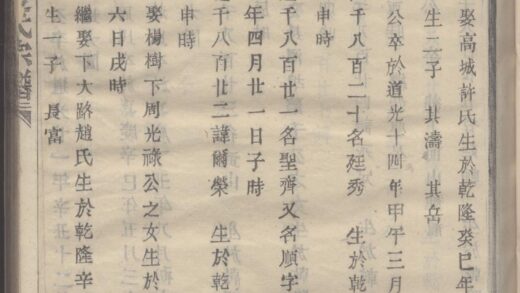 娶高城許氏生於乾隆癸巳年
生二子 其濤 其岳
公卒於道光十四年甲午三月
千八百二十名廷秀 生於乾
申時
千八百廿一名聖齊又名順字
年四月廿一日子時
千八百廿二諱爾榮 生於乾
申時
娶楊樹下周光祿公之女生於
六日戌時
繼娶下大路趙氏生於乾隆辛
生一子 長富
氏宗譜